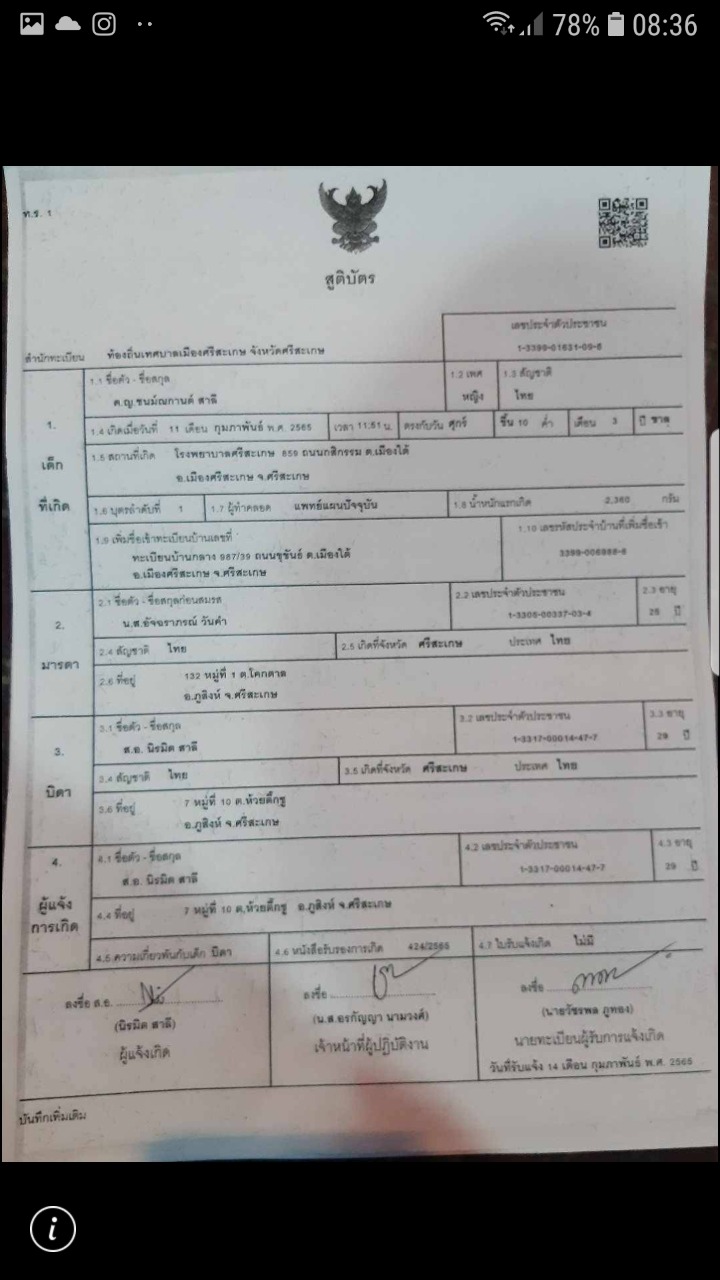 78% 08:36
ท.ร. 1
สูติบัตร
สำนักทะเบียน ท้องถิ่นเทศบาลเมืองศรีสะเกษ จังหวัดศรีสะเกษ
เลขประจำตัวประชาชน
1. เด็กที่เกิด
1.1 ชื่อตัว - ชื่อสกุล
ด.ญ.ชนม์ณกานต์ สาลี
1.2 เพศ
หญิง
1.3 สัญชาติ
ไทย
1.4 เกิดเมื่อวันที่ 11 เดือน กุมภาพันธ์ พ.ศ. 2565 เวลา 11:51 น. ตรงกับวัน ศุกร์ ขึ้น 10 ค่ำ เดือน 3 ปี ขาล
1.5 สถานที่เกิด โรงพยาบาลศรีสะเกษ 859 ถนนกสิกรรม ต.เมืองใต้
อ.เมืองศรีสะเกษ จ.ศรีสะเกษ
1.6 บุตรลำดับที่ 1 1.7 ผู้ทำคลอด แพทย์แผนปัจจุบัน 1.8 น้ำหนักแรกเกิด 2,360 กรัม
1.9 เพิ่มชื่อเข้าทะเบียนบ้านเลขที่
ทะเบียนบ้านกลาง 987/39 ถนนขุขันธ์ ต.เมืองใต้
อ.เมืองศรีสะเกษ จ.ศรีสะเกษ
1.10 เลขรหัสประจำบ้านที่เพิ่มชื่อเข้า
2. มารดา
2.1 ชื่อตัว - ชื่อสกุลก่อนสมรส
น.ส.อัจฉราภรณ์ วันคำ
2.2 เลขประจำตัวประชาชน
1-3305-00337-03-4
2.3 อายุ
25 ปี
2.4 สัญชาติ ไทย 2.5 เกิดที่จังหวัด ศรีสะเกษ ประเทศ ไทย
2.6 ที่อยู่ 132 หมู่ที่ 1 ต.โคกตาล
อ.ภูสิงห์ จ.ศรีสะเกษ
3. บิดา
3.1 ชื่อตัว - ชื่อสกุล
ส.อ. นิรมิต สาลี
3.2 เลขประจำตัวประชาชน
1-3317-00014-47-7
3.3 อายุ
29 ปี
3.4 สัญชาติ ไทย 3.5 เกิดที่จังหวัด ศรีสะเกษ ประเทศ ไทย
3.6 ที่อยู่ 7 หมู่ที่ 10 ต.ห้วยติ๊กชู
อ.ภูสิงห์ จ.ศรีสะเกษ
4. ผู้แจ้งการเกิด
4.1 ชื่อตัว - ชื่อสกุล
ส.อ. นิรมิต สาลี
4.2 เลขประจำตัวประชาชน
1-3317-00014-47-7
4.3 อายุ
29 ปี
4.4 ที่อยู่ 7 หมู่ที่ 10 ต.ห้วยติ๊กชู อ.ภูสิงห์ จ.ศรีสะเกษ
4.5 ความเกี่ยวพันกับเด็ก บิดา 4.6 หนังสือรับรองการเกิด 424/2565 4.7 ใบรับแจ้งเกิด ไม่มี
ลงชื่อ ส.อ.
(นิรมิต สาลี)
ผู้แจ้งเกิด
ลงชื่อ
(น.ส.อรกัญญา นามวงศ์)
เจ้าหน้าที่ผู้ปฏิบัติงาน
ลงชื่อ
(นายวัชรพล ภูทอง)
นายทะเบียนผู้รับการแจ้งเกิด
วันที่รับแจ้ง 14 เดือน กุมภาพันธ์ พ.ศ. 2565
บันทึกเพิ่มเติม